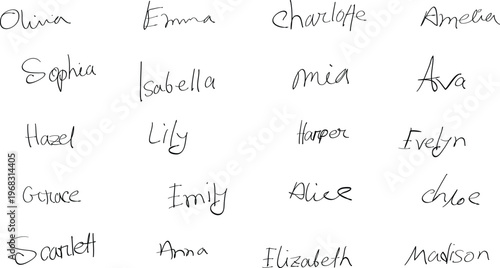 Olivia Emma Charlotte Amelia
Sophia Isabella mia Ava
Hazel Lily Harper Evelyn
Grace Emily Alice chloe
Scarlett Anna Elizabeth Madison
Adobe Stock | #1968314405